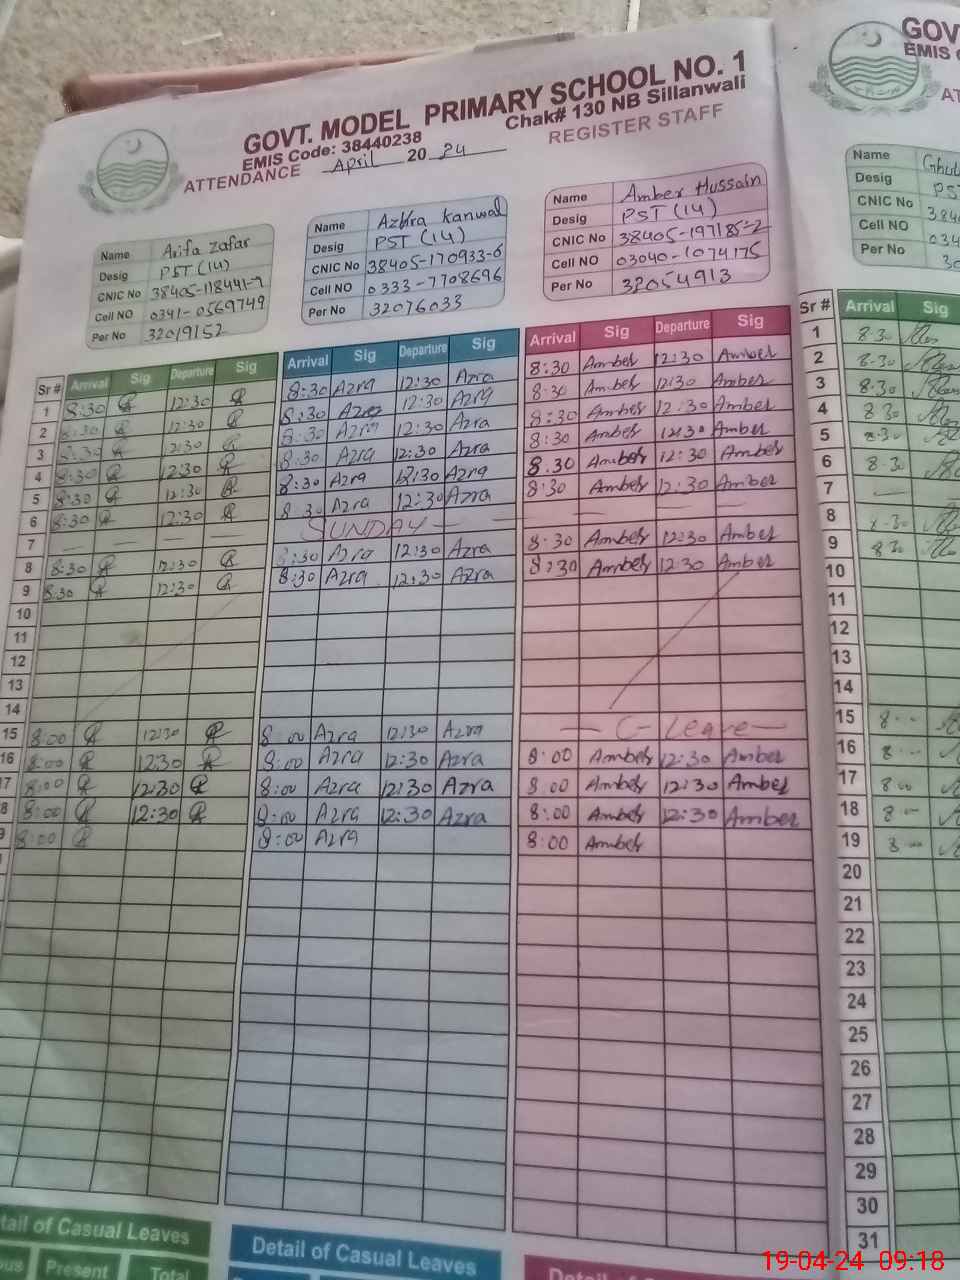 GOVT. MODEL PRIMARY SCHOOL NO. 1
EMIS Code: 38440238 Chak# 130 NB Sillanwali
ATTENDANCE April 20 24 REGISTER STAFF
GOV
EMIS
AT
Name Arifa Zafar
Desig PST (14)
CNIC No 38405-118441-9
Cell NO 0341-0569749
Per No 32019152
Name Azhra Kanwal
Desig PST (14)
CNIC No 38405-170933-6
Cell NO 0333-7708696
Per No 32076033
Name Amber Hussain
Desig PST (14)
CNIC No 38405-197185-2
Cell NO 03040-1074175
Per No 32054913
Name
Desig PS
CNIC No 384
Cell NO 034
Per No 30
Sr # Arrival Sig Departure Sig Arrival Sig Departure Sig Arrival Sig Departure Sig Sr # Arrival Sig
1 8:30 12:30 8:30 Azra 12:30 Azra 8:30 Amber 12:30 Amber 1 8:30
2 8:30 12:30 8:30 Azra 12:30 Azra 8:30 Amber 12:30 Amber 2 8:30
3 8:30 12:30 8:30 Azra 12:30 Azra 8:30 Amber 12:30 Amber 3 8:30
4 8:30 12:30 8:30 Azra 12:30 Azra 8:30 Amber 12:30 Amber 4 8:30
5 8:30 12:30 8:30 Azra 12:30 Azra 8:30 Amber 12:30 Amber 5 8:30
6 8:30 12:30 8:30 Azra 12:30 Azra 8:30 Amber 12:30 Amber 6 8:30
7 — — — — SUNDAY — — — — — — 7 —
8 8:30 12:30 8:30 Azra 12:30 Azra 8:30 Amber 12:30 Amber 8 8:30
9 8:30 12:30 8:30 Azra 12:30 Azra 8:30 Amber 12:30 Amber 9 8:30
10 10
11 11
12 12
13 13
14 14
15 8:00 12:30 8:00 Azra 12:30 Azra — C-Leave — 15 8:00
16 8:00 12:30 8:00 Azra 12:30 Azra 8:00 Amber 12:30 Amber 16 8:00
17 8:00 12:30 8:00 Azra 12:30 Azra 8:00 Amber 12:30 Amber 17 8:00
8 8:00 12:30 8:00 Azra 12:30 Azra 8:00 Amber 12:30 Amber 18 8:00
9 8:00 8:00 Azra 8:00 Amber 19 8:00
20
21
22
23
24
25
26
27
28
29
30
31
tail of Casual Leaves
ous Present Total
Detail of Casual Leaves
Detail of Casual Leaves
19-04-24 09:18